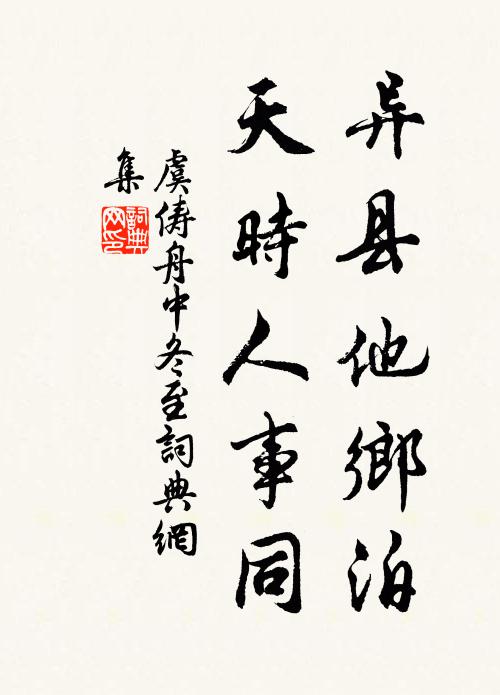 异县他鄉泊
天時人事同
虞俦舟中冬至詞典網
集
詞典
网印